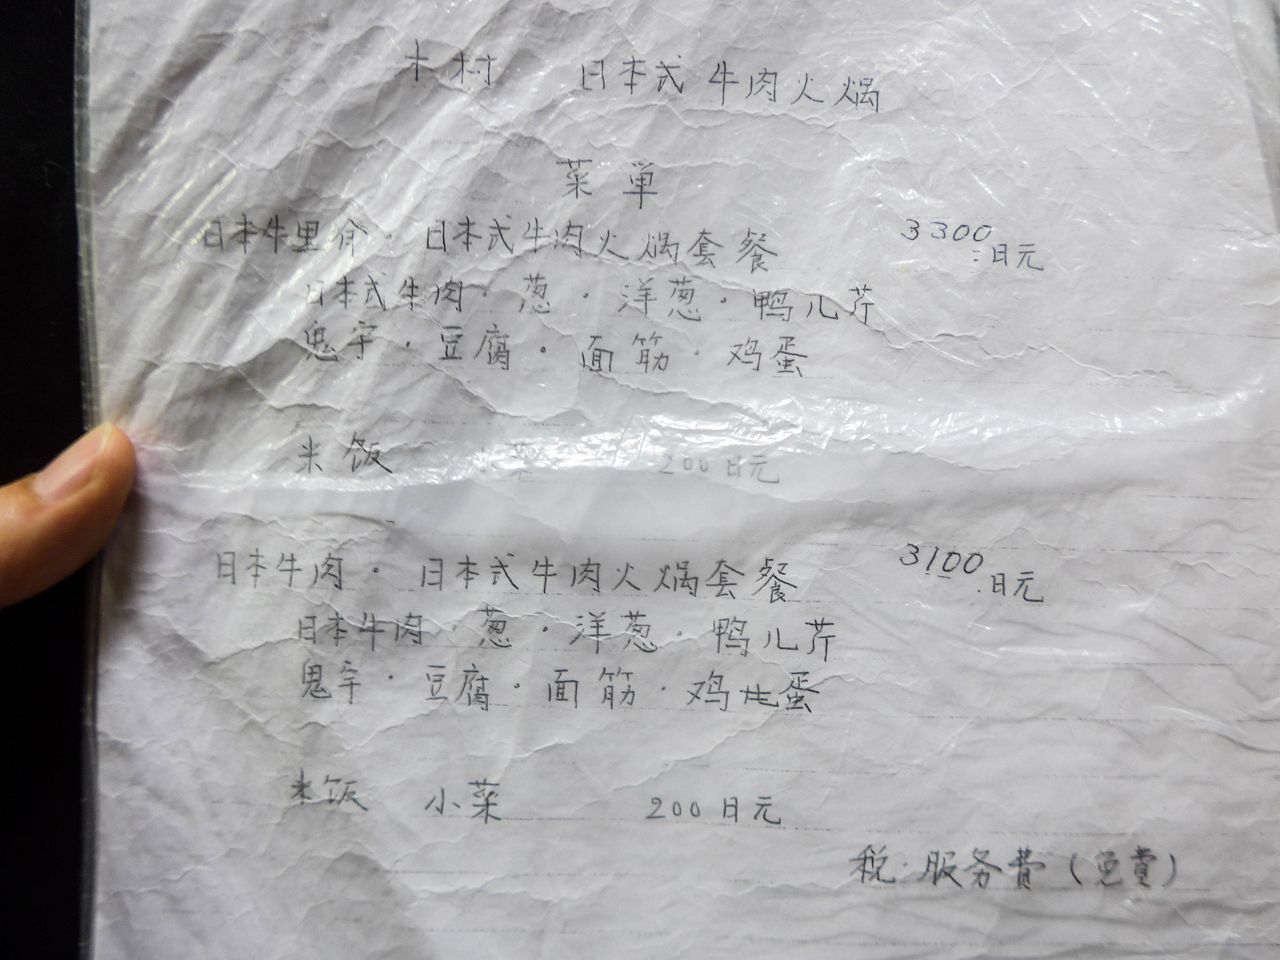 木村 日本式牛肉火锅
菜单
日本牛里脊·日本式牛肉火锅套餐 3300日元
日本式牛肉·葱·洋葱·鸭儿芹
鬼芋·豆腐·面筋·鸡蛋
米饭 小菜 200日元
日本牛肉·日本式牛肉火锅套餐 3100日元
日本牛肉·葱·洋葱·鸭儿芹
鬼芋·豆腐·面筋·鸡蛋
米饭 小菜 200日元
税·服务费(免費)